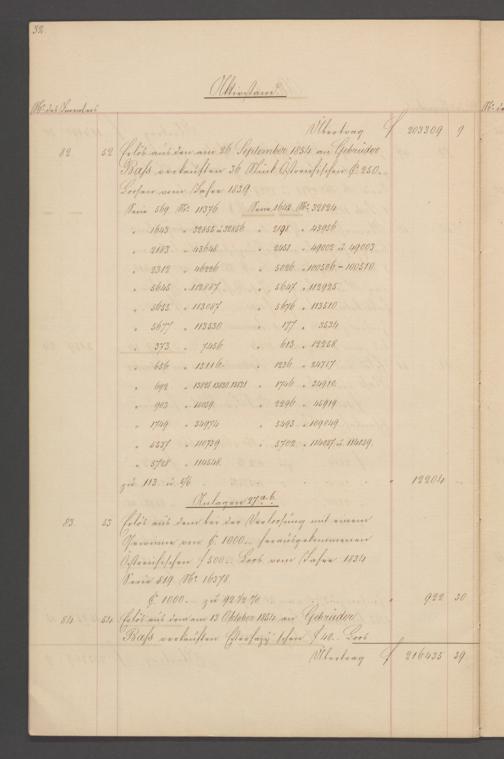 32.
Aktivstand.
No. des Inventars
Übertrag f 203309 9
82 52 Erlös aus den am 26 September 1854 an Gebrüder
Baß verkauften 36 Stück Östreichischen f. 250.
Loosen vom Jahre 1839.
Serie 569 No. 11376 Serie 1642 No. 32824
" 1643 " 32855 u 32856 " 2198 " 43956
" 2183 " 43648 " 2451 " 49002 u 49003
" 2312 " 46226 " 5026 " 100506-100510
" 5645 " 112887 " 5647 " 112925
" 5655 " 113087 " 5676 " 113510
" 5677 " 113530 " 177 " 3534
" 373 " 7456 " 613 " 12258
" 656 " 13116 " 1236 " 24717
" 692 " " 1746 " 34910
" 903 " " 2296 " 45919
" 1749 " 34974 " 5453 " 109049
" 5537 " 110739 " 5702 " 114037 u. 114039
" 5728 " 114548
zu 113 u. 5/8 " 12204
Anlagen 27 a. b.
83 53 Erlös aus dem bei der Verloosung mit einem
Gewinne von f. 1000. herausgekommenen
Östreichischen f 500. Loos vom Jahre 1834
Serie 519 No. 10378.
f. 1000. zu 92 1/4 % " 922 30
84 54 Erlös aus dem am 13 Oktober 1854 an Gebrüder
Baß verkauften Esterhazy'schen f 40. Loos
Übertrag f 216435 39